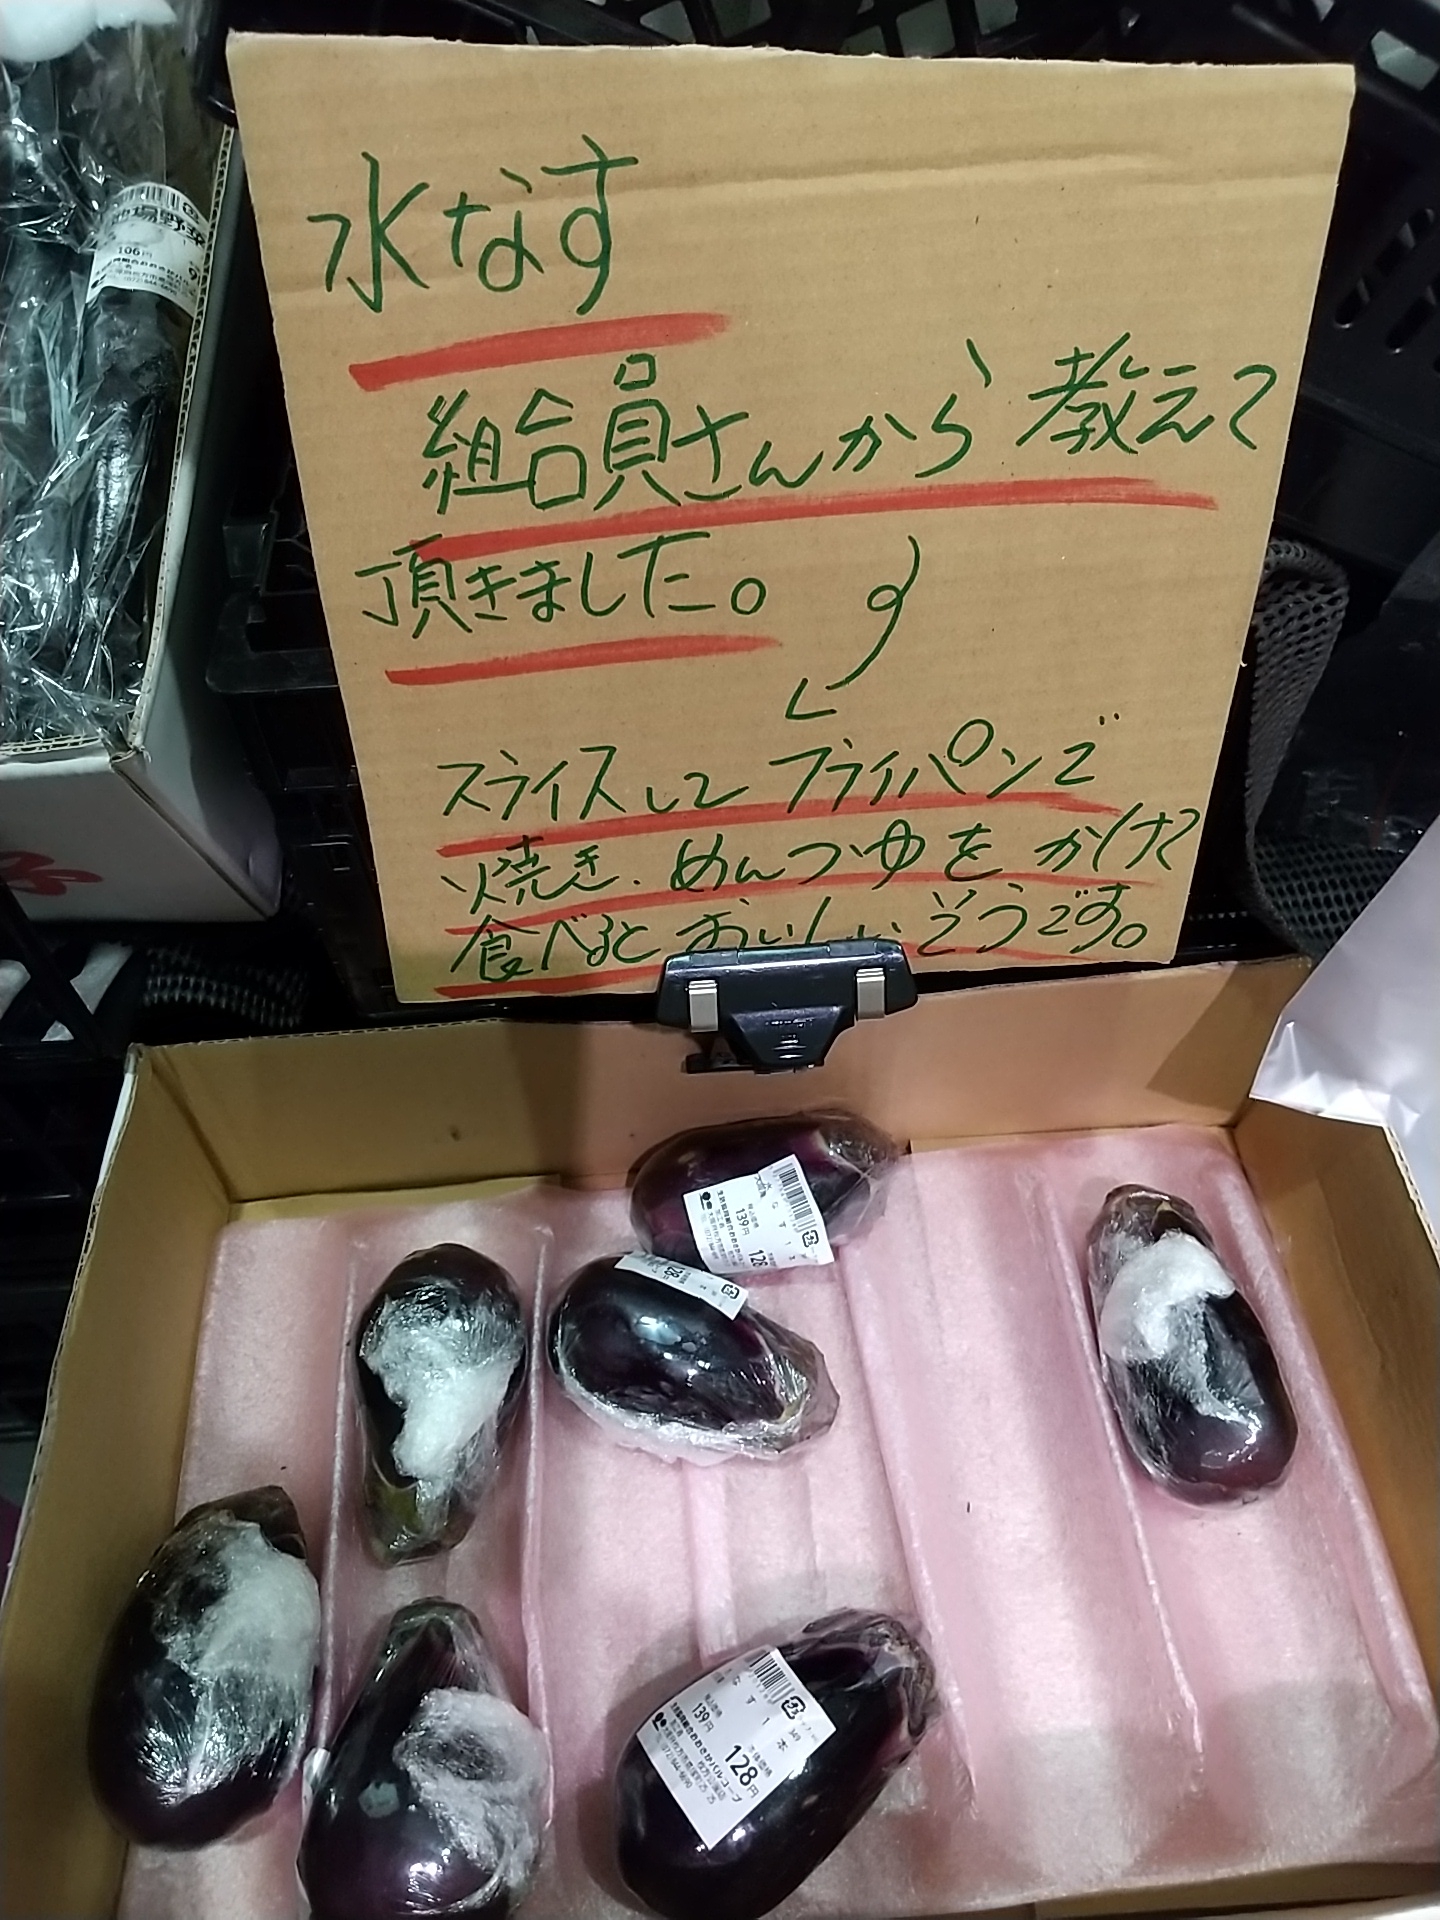 水なす
組合員さんから教えて
頂きました。
スライスしてフライパンで
焼き、めんつゆをかけて
食べるとおいしいそうです。
地場野菜
106円
139円
128
128
なす 1本
139円
本体価格
128円